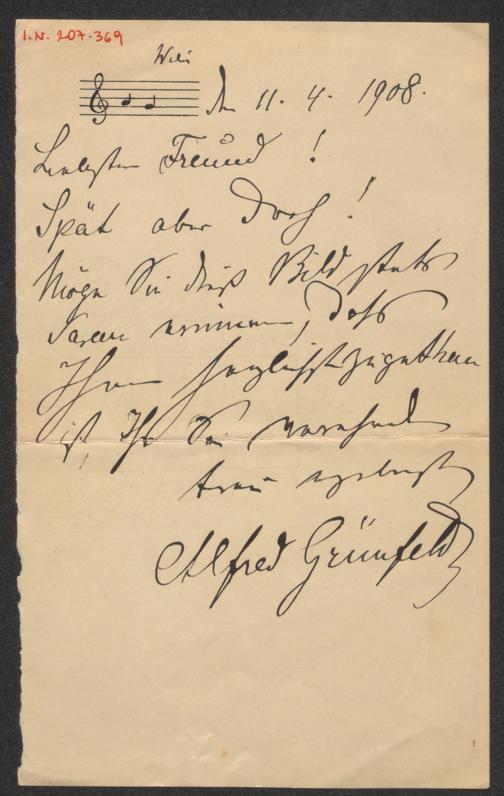 I.N. 207.369
Wien
den 11. 4. 1908.
Liebster Freund!
Spät aber doch!
Möge Sie dieß Bild stets
daran erinnern, daß
Ihnen herzlichst zugethan
ist, Ihr Sie verehrend
treu ergebenster
Alfred Grünfeld